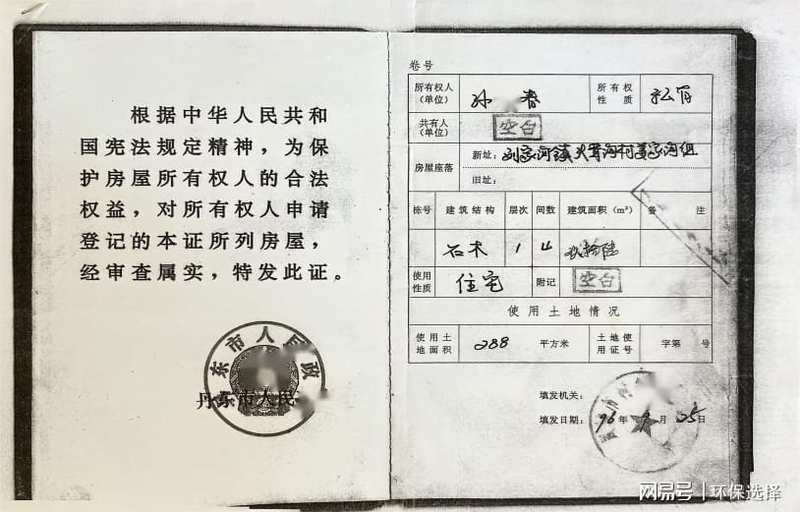 根据中华人民共和
国宪法规定精神，为保
护房屋所有权人的合法
权益，对所有权人申请
登记的本证所列房屋，
经审查属实，特发此证。
东市人民政
丹东市人民
卷号
所有权人（单位） 孙 春 所有权性质 私有
共有人（单位） 空白
房屋座落 新址：刘家河镇 沟村姜家沟组
旧址：
栋号 建筑结构 层次 间数 建筑面积（m²） 备 注
石木 1 4 玖拾陆
使用性质 住宅 附记 空白
使用土地情况
使用土地面积 288 平方米 土地使用证号 字第 号
填发机关：
填发日期：96年9月25日
网易号 | 环保选择